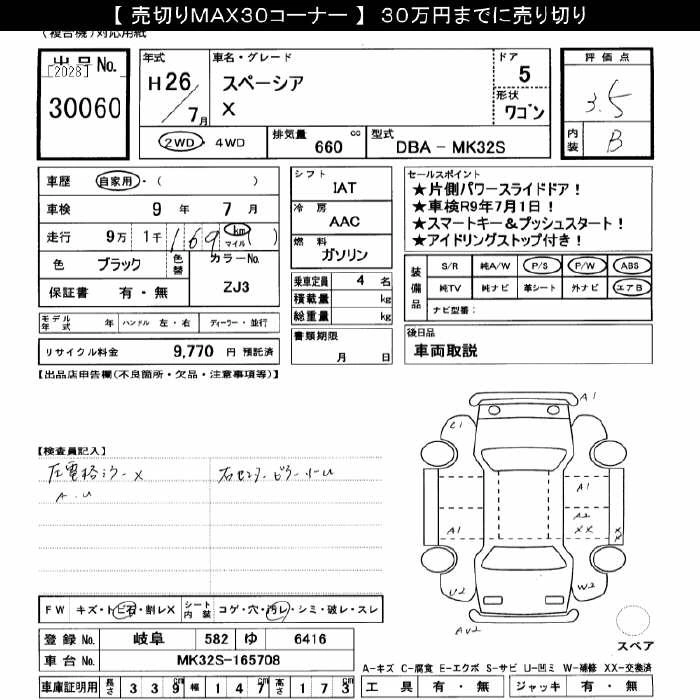 【 売切りMAX30コーナー 】 30万円までに売り切り
(複合機)対応用紙
出品No.
[2028]
30060
年式
H26/7月
車名・グレード
スペーシア
X
ドア
5
形状
ワゴン
評価点
3.5
内装
B
2WD ・ 4WD
排気量
660 cc
型式
DBA - MK32S
車歴 自家用・( )
車検 9 年 7 月
走行 9万 1千 169 km マイル ( )
色 ブラック 色替 カラーNo.
ZJ3
保証書 有・無
シフト
IAT
冷房
AAC
燃料
ガソリン
乗車定員 4 名
積載量 kg
総重量 kg
書類期限
月 日
セールスポイント
★片側パワースライドドア！
★車検R9年7月1日！
★スマートキー＆プッシュスタート！
★アイドリングストップ付き！
装備品
S/R 純A/W P/S P/W ABS
純TV 純ナビ 革シート 外ナビ エアB
ナビ型番：
モデル年式 年 ハンドル 左・右 ディーラー・並行
リサイクル料金 9,770 円 預託済
後日品
車両取説
【出品店申告欄(不良箇所・欠品・注意事項等)】
【検査員記入】
左電格ミラーX
A.U
右センターピラー小U
A1
C1
A1
A1
A2
XX
XX
U2
W2
AU2
FW キズ・トビ石・割レX シート内装 コゲ・穴・汚レ・シミ・破レ・スレ
スペア
登録No. 岐阜 582 ゆ 6416
車台No. MK32S-165708
A-キズ C-腐食 E-エクボ S-サビ U-凹ミ W-補修 XX-交換済
車庫証明用 長さ 339cm 幅 147cm 高さ 173cm
工具 有・無 ジャッキ 有・無